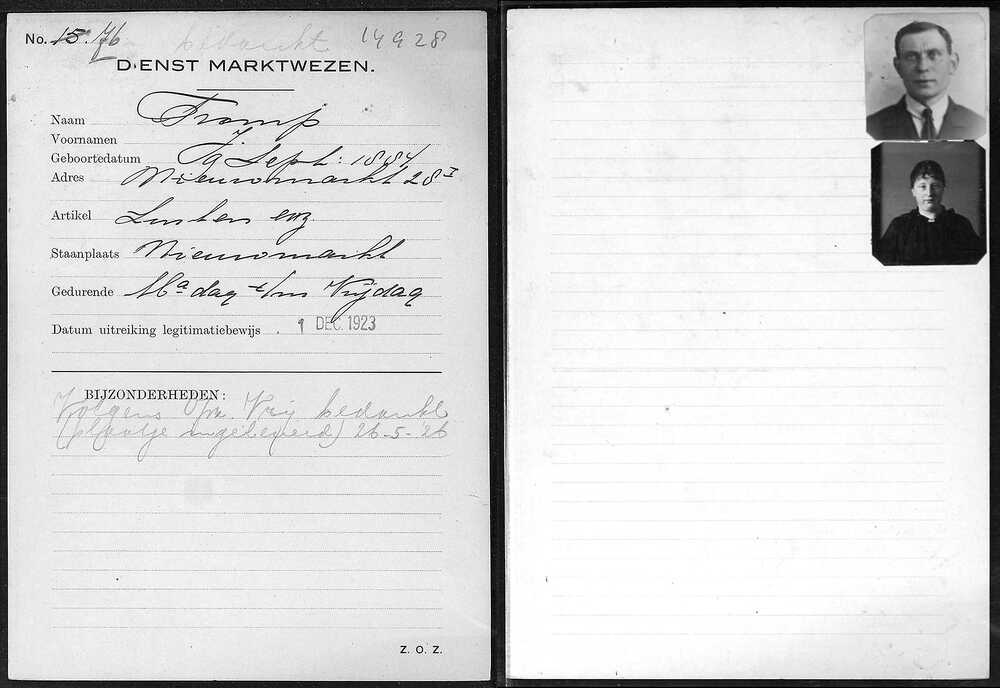 No. 15. 76 bedankt 14928
DIENST MARKTWEZEN.
Naam Tromp
Voornamen J.
Geboortedatum 19 Sept: 1884
Adres Nieuwmarkt 28 I
Artikel Lusten enz.
Staanplaats Nieuwmarkt
Gedurende Ma dag t/m Vrijdag
Datum uitreiking legitimatiebewijs . 1 DEC. 1923
BIJZONDERHEDEN:
Volgens Vrij bedankt
(plaatje ingeleverd) 26-5-26
Z. O. Z.